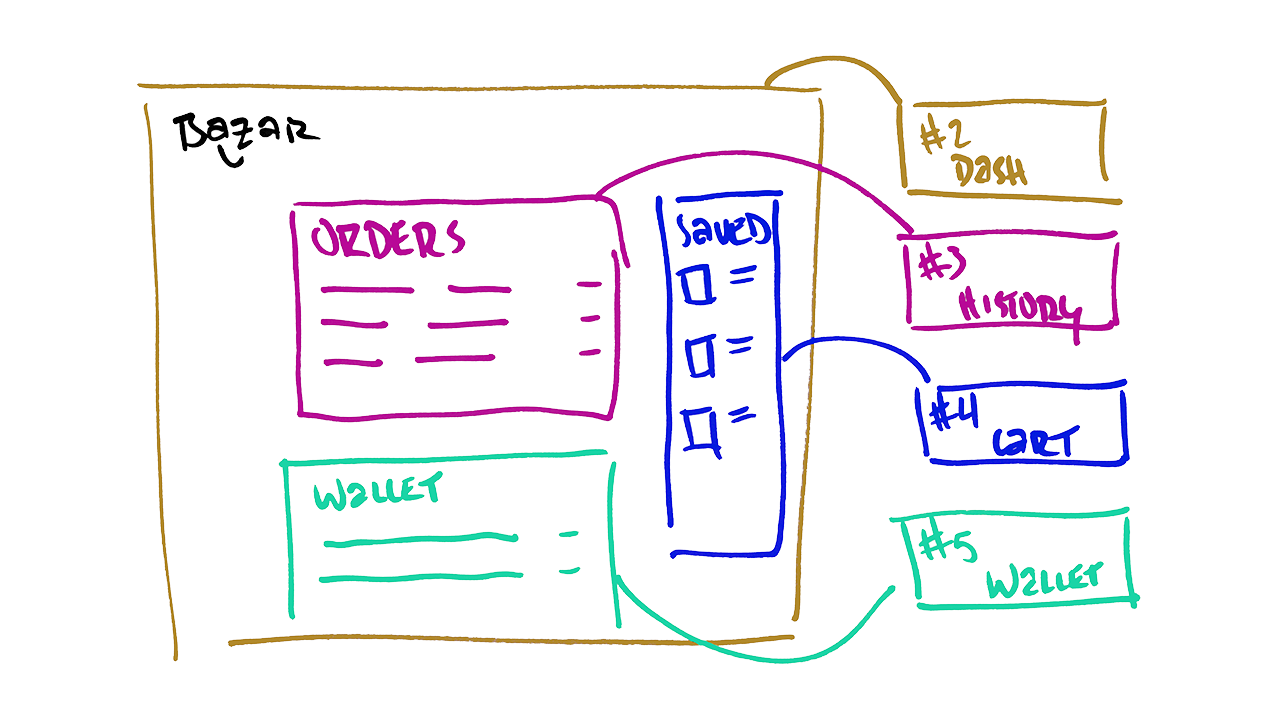 Bazar
ORDERS
saved
Wallet
#2
Dash
#3
History
#4
Cart
#5
Wallet